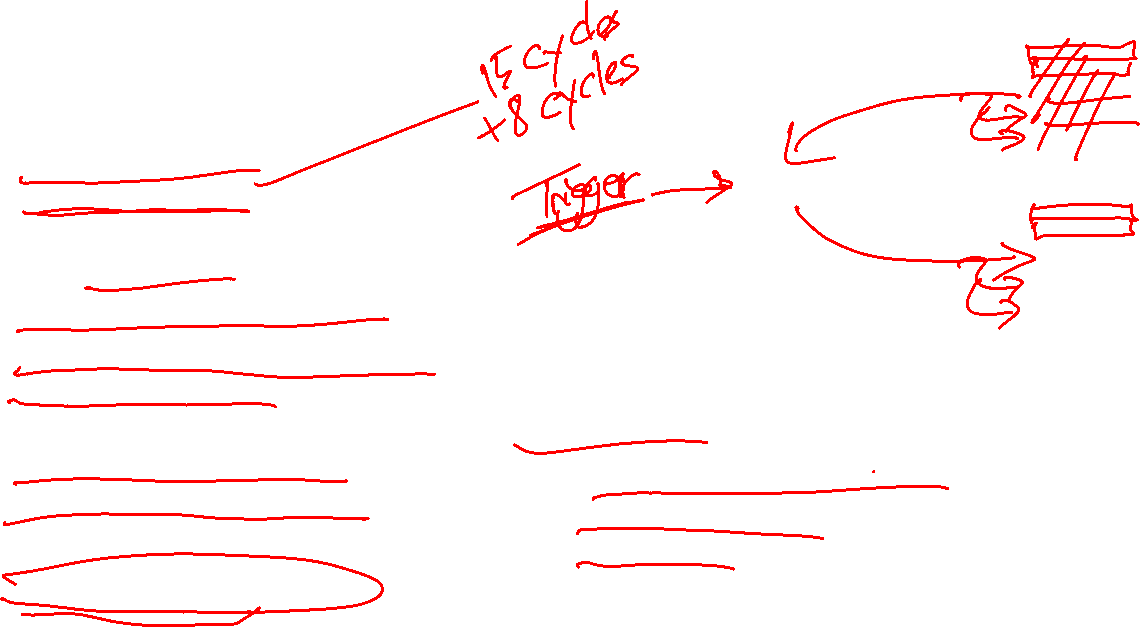 15 cycles
+8 cycles
Trigger